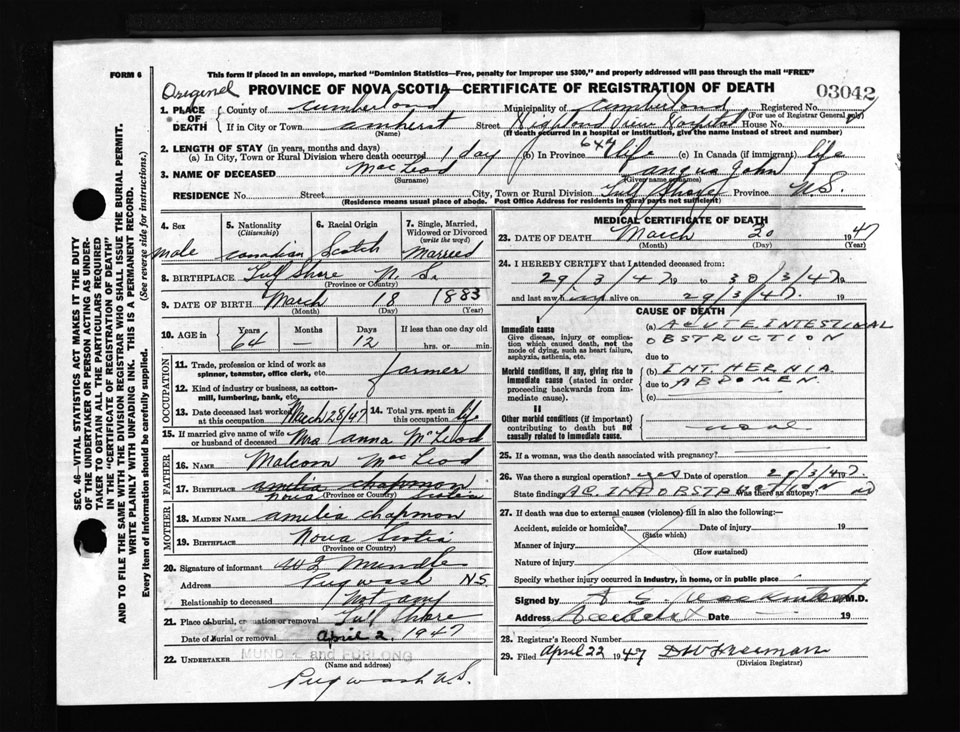 FORM 6
This form if placed in an envelope, marked "Dominion Statistics—Free, penalty for improper use $300," and properly addressed will pass through the mail "FREE"
Original
PROVINCE OF NOVA SCOTIA—CERTIFICATE OF REGISTRATION OF DEATH
03042
1. PLACE OF DEATH { County of Cumberland Municipality of Cumberland Registered No.
(For use of Registrar General only)
If in City or Town Amherst Street Highland View Hospital House No.
(Name) (If death occurred in a hospital or institution, give the name instead of street and number)
2. LENGTH OF STAY (in years, months and days)
(a) In City, Town or Rural Division where death occurred 1 day (b) In Province life (c) In Canada (if immigrant) life
3. NAME OF DECEASED MacLeod Angus John
(Surname) (Given name or names)
RESIDENCE No. Street City, Town or Rural Division Gulf Shore Province N.S.
(Residence means usual place of abode. Post Office Address for residents in rural parts not sufficient)
4. Sex male
5. Nationality (Citizenship) Canadian
6. Racial Origin Scotch
7. Single, Married, Widowed or Divorced (write the word) Married
8. BIRTHPLACE Gulf Shore N. S.
(Province or Country)
9. DATE OF BIRTH March 18 1883
(Month) (Day) (Year)
10. AGE in Years 64 Months — Days 12 If less than one day old hrs. or min.
OCCUPATION
11. Trade, profession or kind of work as spinner, teamster, office clerk, etc. farmer
12. Kind of industry or business, as cotton-mill, lumbering, bank, etc.
13. Date deceased last worked at this occupation March 28/47 14. Total yrs. spent in this occupation life
15. If married give name of wife or husband of deceased Mrs Anna McLeod
FATHER
16. NAME Malcom MacLeod
17. BIRTHPLACE Amelia Chapman
Nova Scotia
(Province or Country)
MOTHER
18. MAIDEN NAME Amelia Chapman
19. BIRTHPLACE Nova Scotia
(Province or Country)
20. Signature of informant W L Mundle
Address Pugwash N.S.
Relationship to deceased Not any
21. Place of burial, cremation or removal Gulf Shore
Date of burial or removal April 2, 1947
22. UNDERTAKER MUNDLE and FURLONG
(Name and address)
Pugwash N.S.
MEDICAL CERTIFICATE OF DEATH
23. DATE OF DEATH March 30 1947
(Month) (Day) (Year)
24. I HEREBY CERTIFY that I attended deceased from:
29/3/47 19 to 30/3/47 19
and last saw him alive on 29/3/47. 19
CAUSE OF DEATH
I
Immediate cause
Give disease, injury or complication which caused death, not the mode of dying, such as heart failure, asphyxia, asthenia, etc.
(a) ACUTE INTESTINAL
OBSTRUCTION
due to
Morbid conditions, if any, giving rise to immediate cause (stated in order proceeding backwards from immediate cause).
(b) INT. HERNIA
due to ABDOMEN.
(c)
II
Other morbid conditions (if important) contributing to death but not causally related to immediate cause.
none
25. If a woman, was the death associated with pregnancy?
26. Was there a surgical operation? yes Date of operation 29/3/47.
State findings AC. INT. OBSTRUCTION Was there an autopsy? no
27. If death was due to external causes (violence) fill in also the following:—
Accident, suicide or homicide? Date of injury 19
(State which)
Manner of injury
(How sustained)
Nature of injury
Specify whether injury occurred in industry, in home, or in public place
Signed by M.D.
Address Amherst Date 19
28. Registrar's Record Number
29. Filed April 22 1947
(Division Registrar)
SEC. 46—VITAL STATISTICS ACT MAKES IT THE DUTY
OF THE UNDERTAKER OR PERSON ACTING AS UNDER-
TAKER TO OBTAIN ALL THE PARTICULARS REQUIRED
IN THE "CERTIFICATE OF REGISTRATION OF DEATH"
AND TO FILE THE SAME WITH THE DIVISION REGISTRAR WHO SHALL ISSUE THE BURIAL PERMIT.
WRITE PLAINLY WITH UNFADING INK. THIS IS A PERMANENT RECORD.
Every item of Information should be carefully supplied. (See reverse side for instructions.)